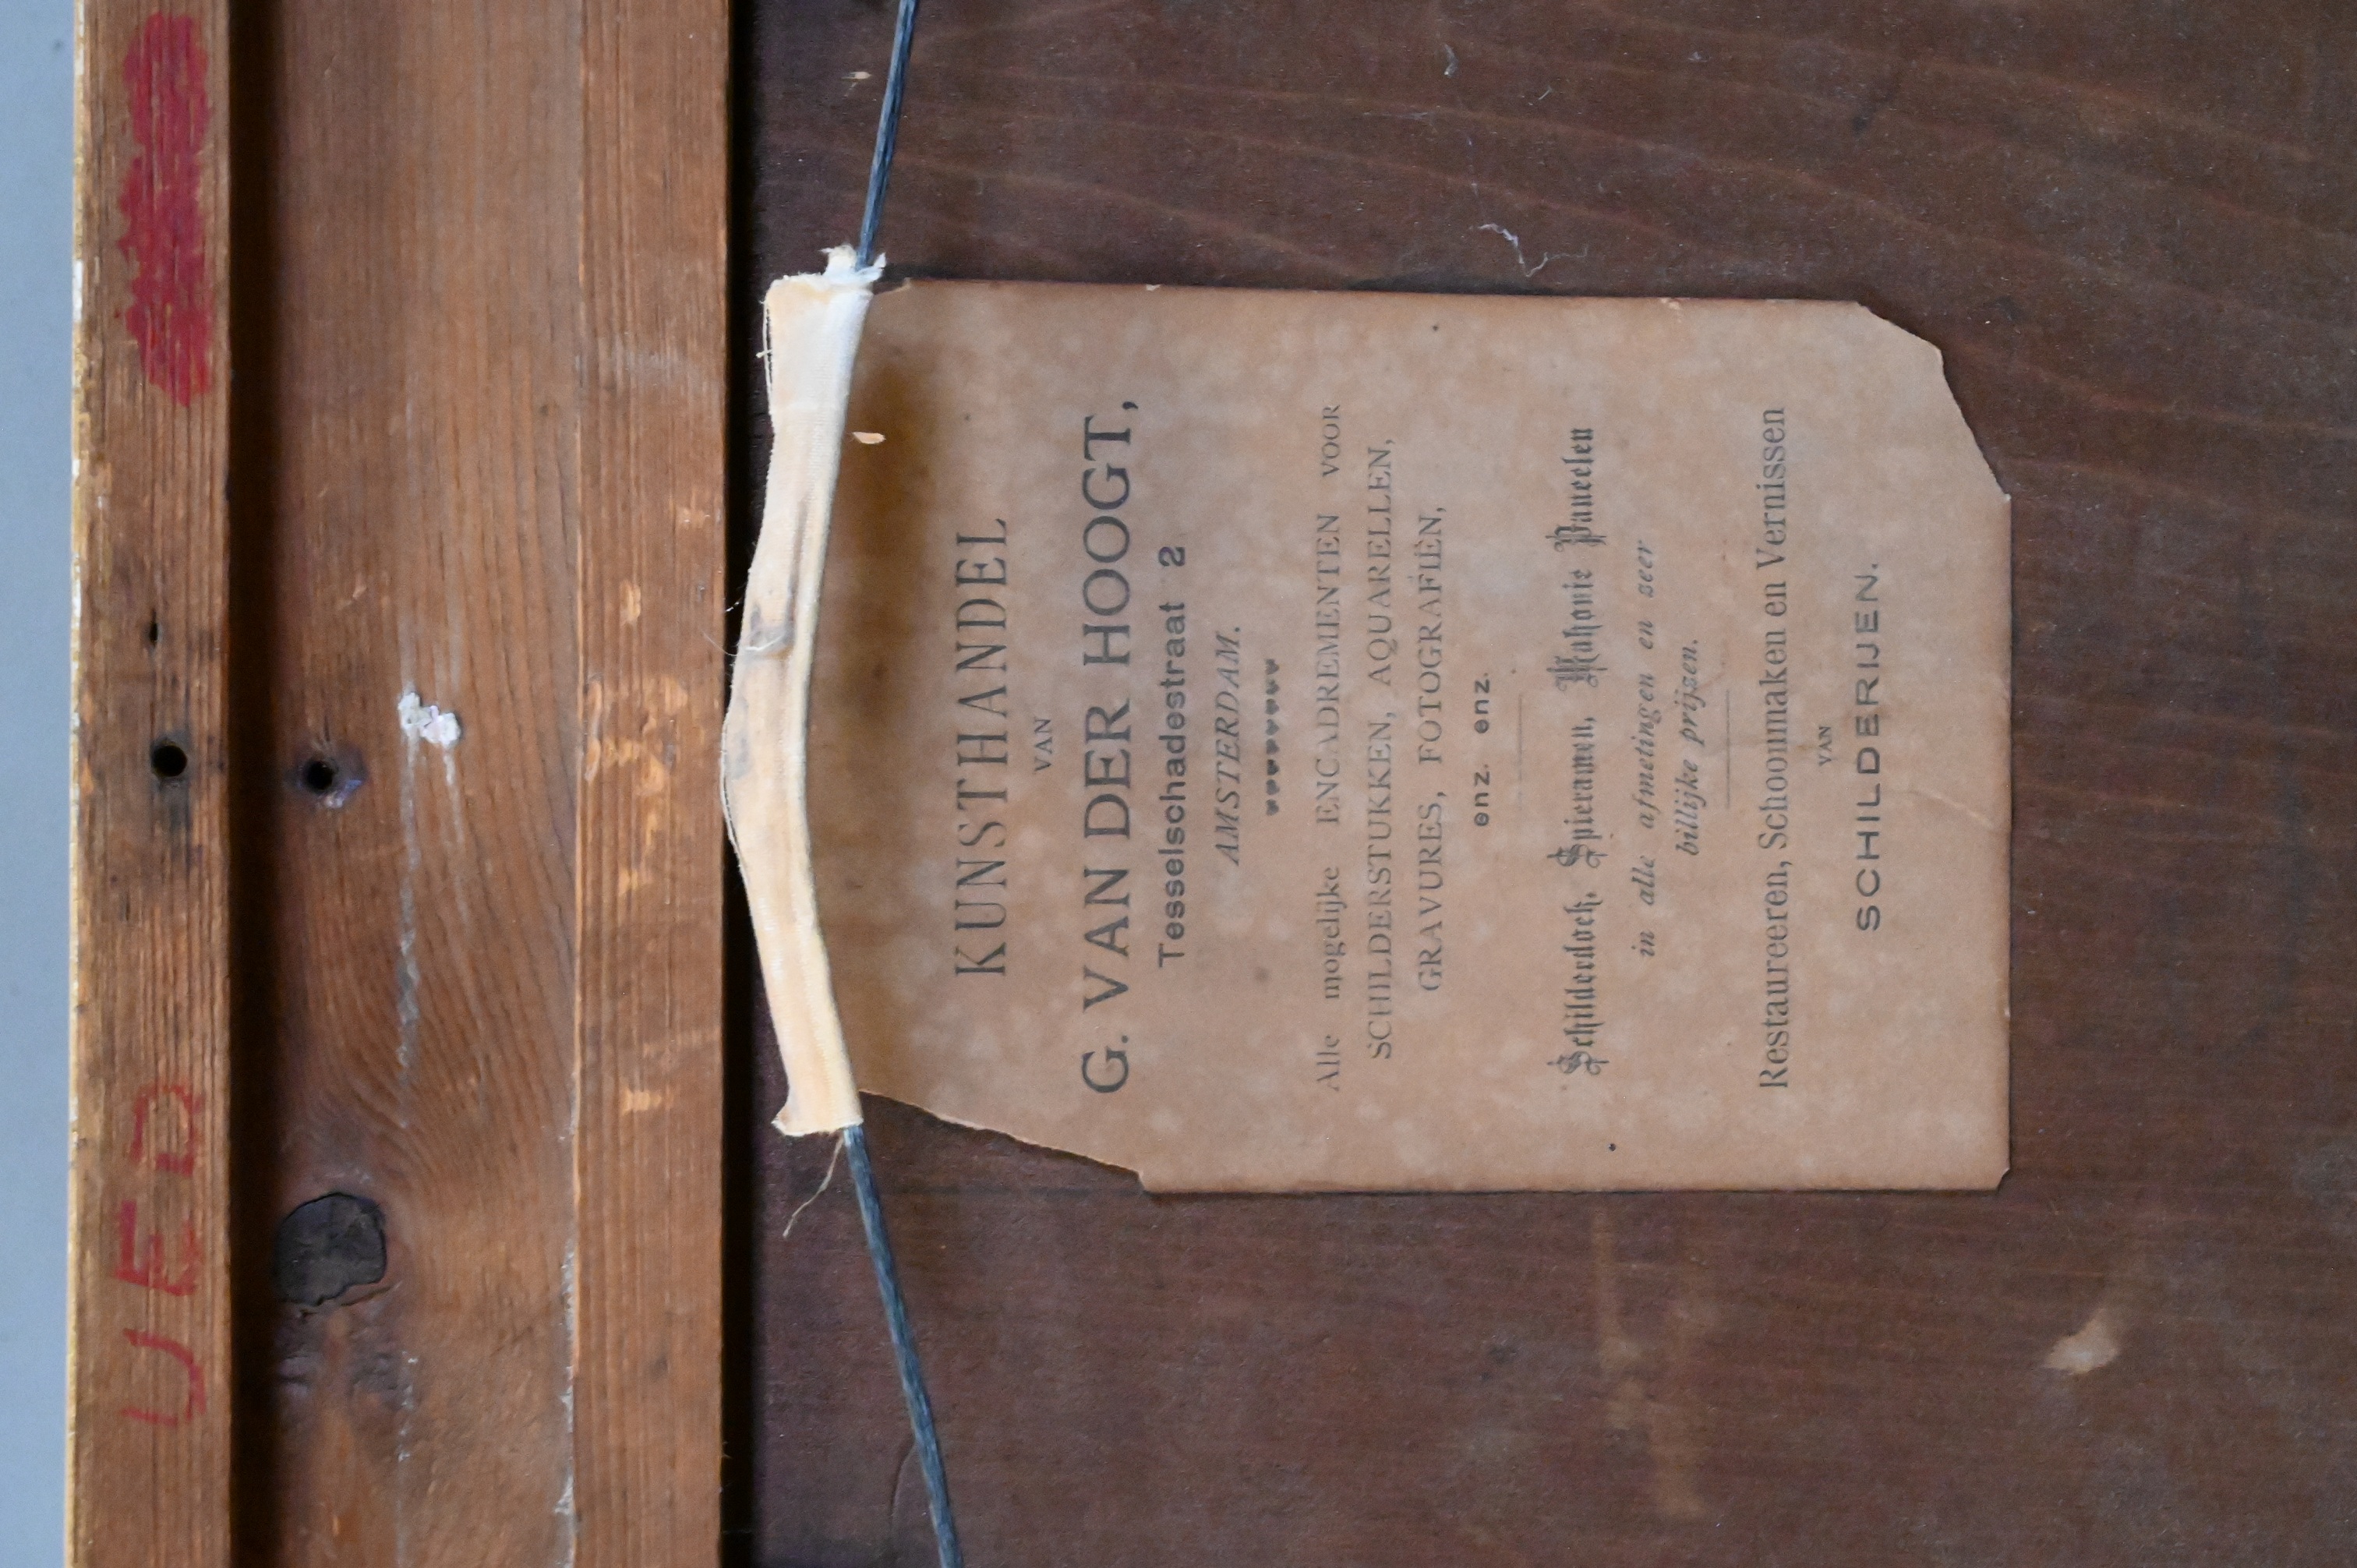 KUNSTHANDEL
VAN
G. VAN DER HOOGT,
Tesselschadestraat 2
AMSTERDAM.
Alle mogelijke ENCADREMENTEN VOOR
SCHILDERSTUKKEN, AQUARELLEN,
GRAVURES, FOTOGRAFIËN,
enz. enz.
Schilderdoek, Spieramen, Mahonie Paneelen
in alle afmetingen en zeer
billijke prijzen.
Restaureeren, Schoonmaken en Vernissen
VAN
SCHILDERIJEN.